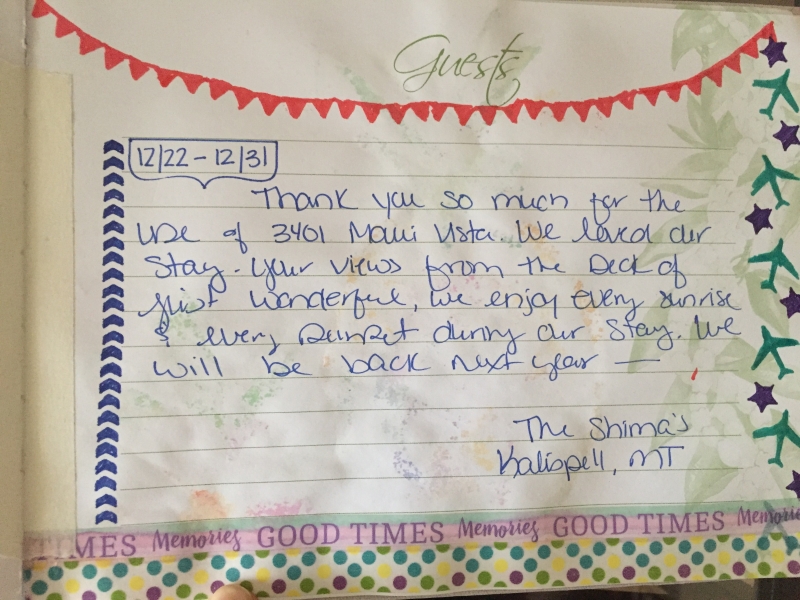 Guests
12/22 - 12/31
Thank you so much for the
use of 3401 Maui Vista. We loved our
Stay. Your views from the Deck of
just wonderful, we enjoy every sunrise
& every sunset during our stay. We
will be back next year —
The Shima's
Kalispell, MT
TIMES Memories GOOD TIMES Memories GOOD TIMES Memories